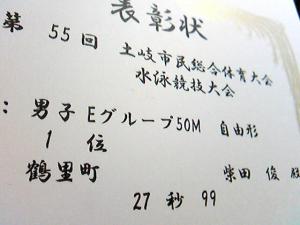 表彰状
第 55 回 土岐市民総合体育大会
水泳競技大会
: 男子 Eグループ50M 自由形
1 位
鶴里町 柴田 俊 殿
27 秒 99